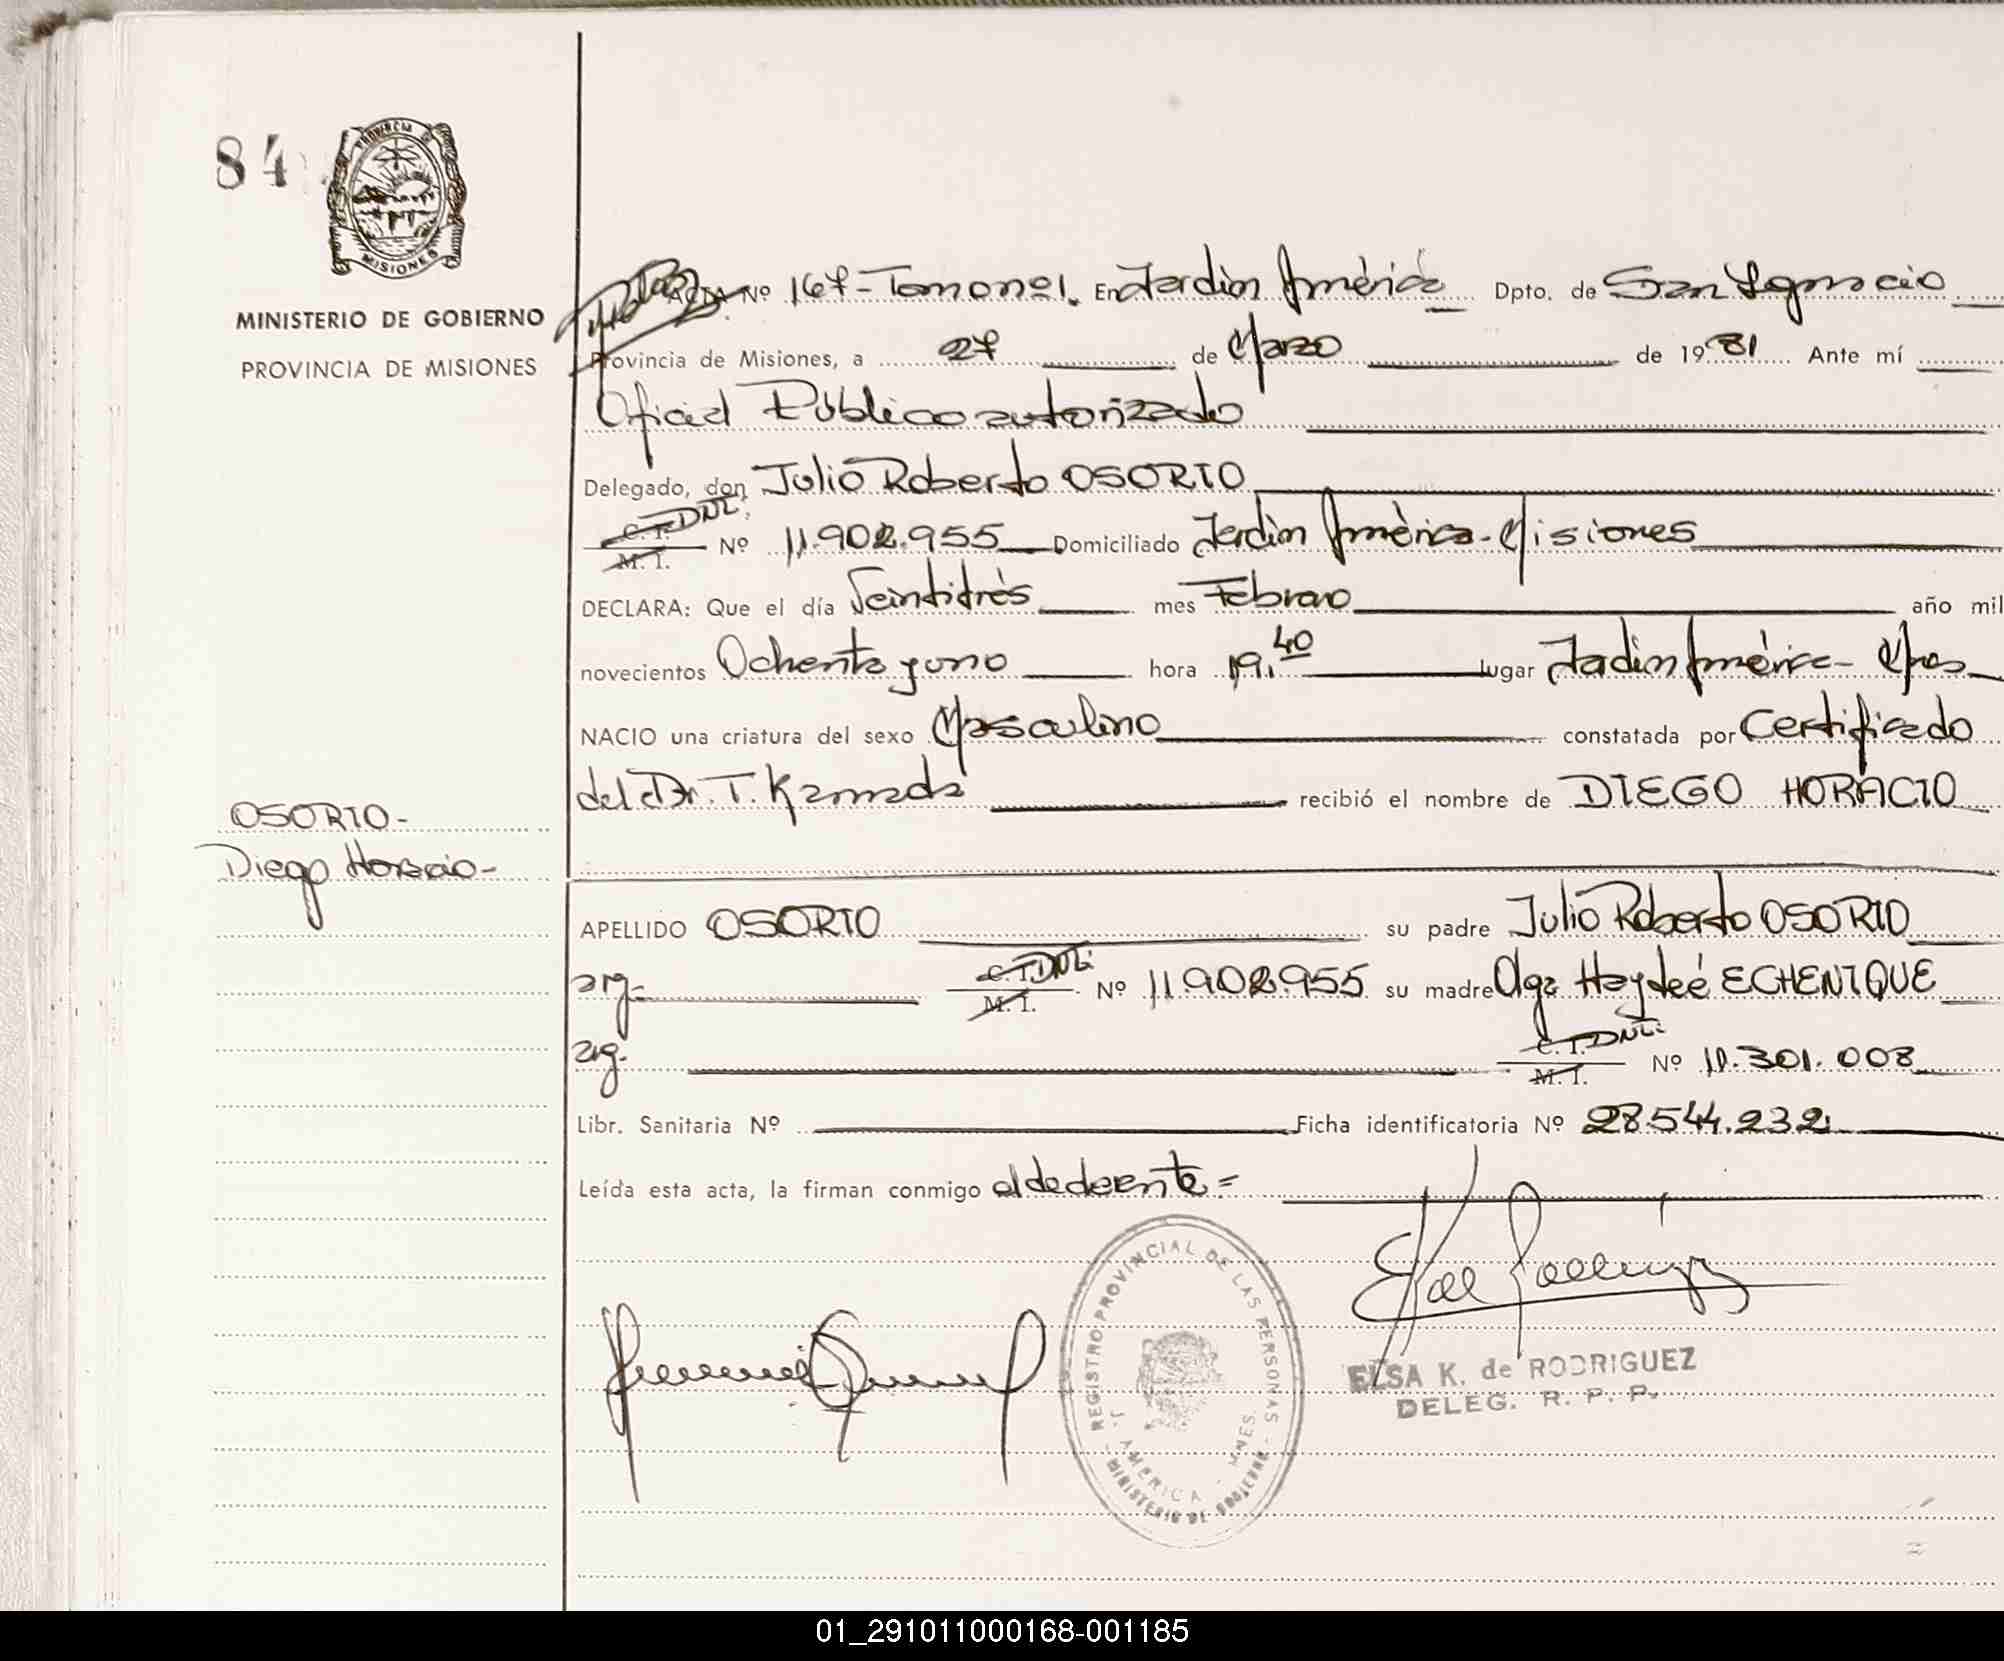 84
PROVINCIA DE
MISIONES
MINISTERIO DE GOBIERNO
PROVINCIA DE MISIONES
ACTA Nº 167-Tomo nº1. En Jardín América Dpto. de San Ignacio
Provincia de Misiones, a 27 de Marzo de 1981 Ante mí
Oficial Público autorizado
Delegado, don Julio Roberto OSORIO
C. I. DNI. M. I. Nº 11.902.955 Domiciliado Jardín América-Misiones
DECLARA: Que el día Veintitrés mes Febrero año mil
novecientos Ochenta y uno hora 19.40 lugar Jardín América- Mnes
NACIO una criatura del sexo Masculino constatada por Certificado
del Dr. T. Kamada recibió el nombre de DIEGO HORACIO
OSORIO-
Diego Horacio-
APELLIDO OSORIO su padre Julio Roberto OSORIO
arg- C. I. DNI. M. I. Nº 11.902.955 su madre Olga Haydeé ECHENIQUE
arg. C. I. DNI. M. I. Nº 11.301.008
Libr. Sanitaria Nº Ficha identificatoria Nº 28.544.232
Leída esta acta, la firman conmigo
REGISTRO PROVINCIAL DE LAS PERSONAS
J. AMERICA - MNES.
MINISTERIO DE GOBIERNO
ELSA K. de RODRIGUEZ
DELEG. R. P. P.
01_291011000168-001185